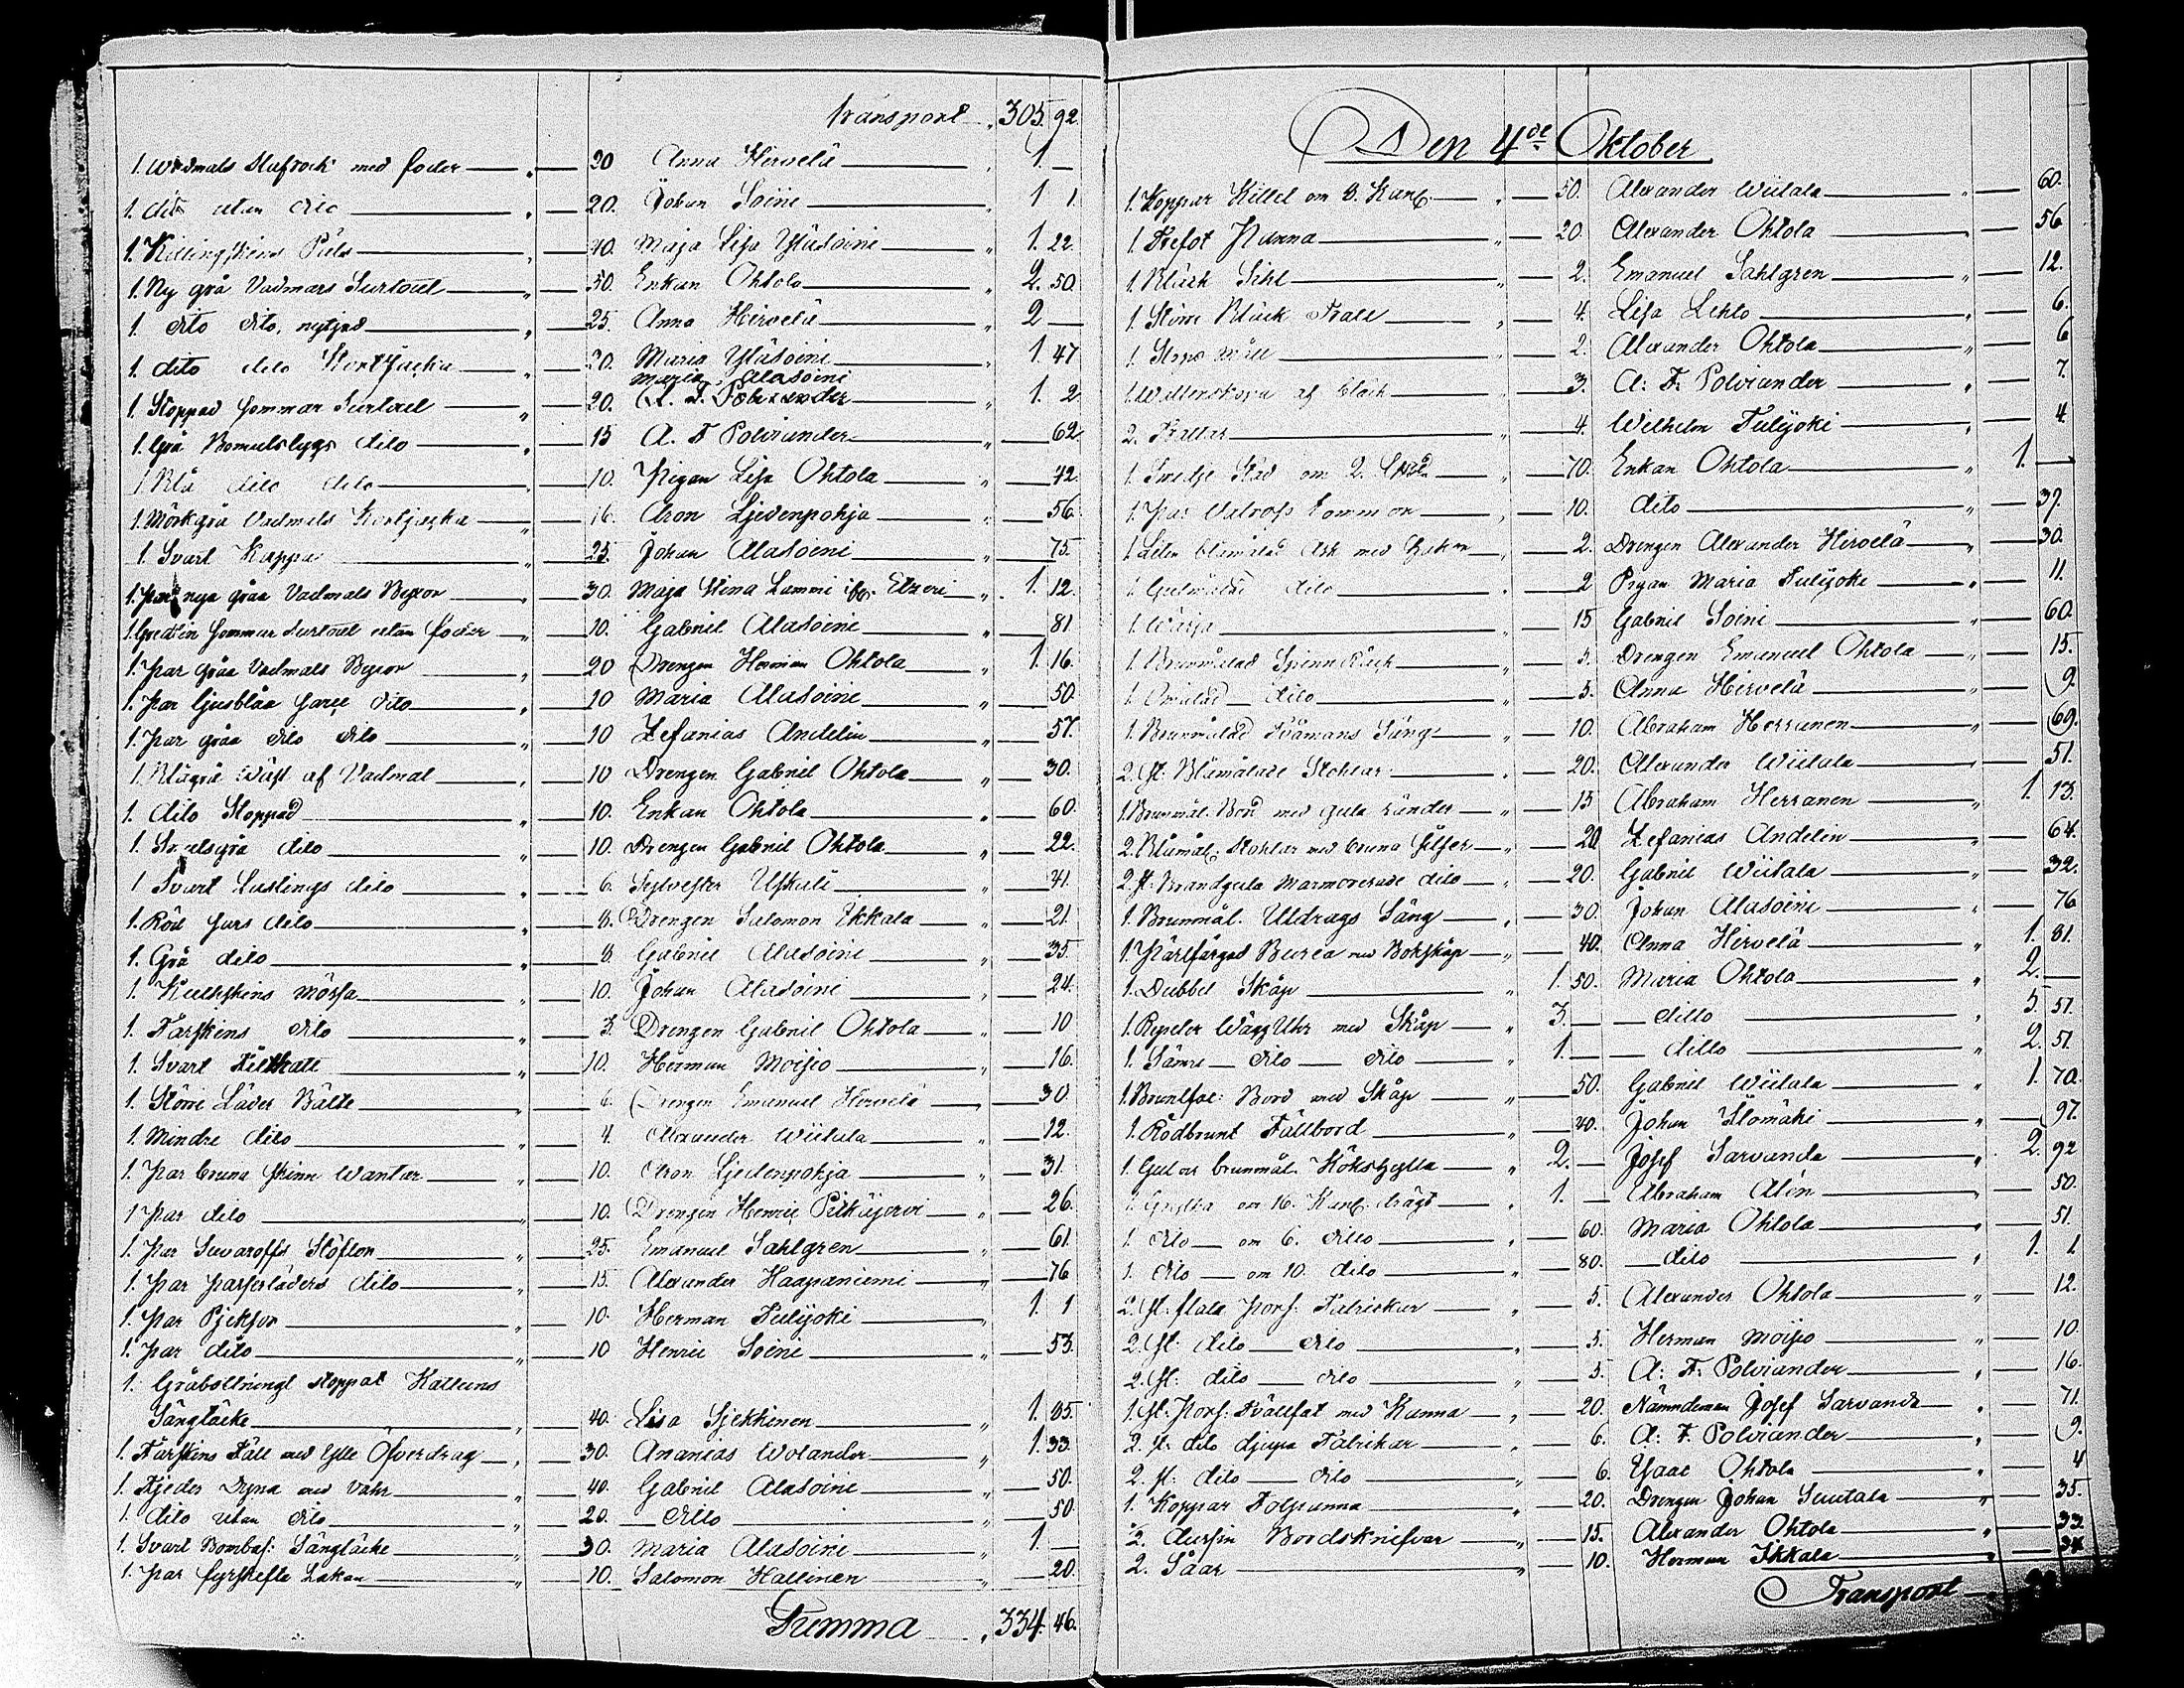 Transport " 305. 92.
1. Wadmals Slufrock med foder " — 20 Anna Hirvelä " 1. —
1. dito utan dito " — 20. Johan Soini " 1 1
1. Killingskins Päls " — 40. Maja Lisa Yläsoini " 1. 22
1. Ny grå Vadmars Surtout " — 50. Enkan Ohtola " 2. 50.
1. dito dito, nytjad " — 25. Anna Hirvelä " 2 —
1. dito dito Kortjacka " — 20. Maria Yläsoini " 1. 47
Maria Alasoini
1. Stoppad Sommar Surtout " — 20. A. F. Polviander " 1. 2
1. Grå Bomulstygs dito " — 15 A. F Polviander " — 62
1. Blå dito dito " — 10. Pigan Lisa Ohtola " — 42.
1. Mörkgrå Vadmals Kortjacka " — 16. Aron Ljedenpohja " — 56.
1. Svart Kappa " — 25. Johan Alasoini " — 75.
1. par nya gråa Vadmals Byxor " — 30. Maja Stina Lammi " 1. 12.
1. Sommar Surtout utan foder " — 10. Gabriel Alasoini " — 81
1. par gråa Vadmals Byxor " — 20 Drengen Herman Ohtola " 1. 16.
1. par ljusblåa dito " — 10 Maria Alasoini " — 50.
1. par gråa dito dito " — 10 Zefanias Andelin " — 57.
1. Blågrå Wäst af Vadmal " — 10 Drengen Gabriel Ohtola " — 30.
1. dito Stoppad " — 10. Enkan Ohtola " — 60.
1. dito " — 10. Drengen Gabriel Ohtola " — 22.
1 Svart Lastings dito " — 6. Sylvester Uskali " — 41.
1. Röd dito " — 8. Drengen Salomon Ikkala " — 21.
1. Grå dito " — 8. Gabriel Alasoini " — 35.
1. mössa " — 10. Johan Alasoini " — 24.
1. Fårskins dito " — 3. Drengen Gabriel Ohtola " — 10
1. Svart Filthatt " — 10. Herman Moisio " — 16.
1. Större Läder Bälte " — 6. Drengen Emanuel Hirvelä " — 30.
1. Mindre dito " — 4. Alexander Wiitala " — 12.
1. par bruna skinn Wantar " — 10. Aron Ljedenpohja " — 31.
1 par dito " — 10. Drengen Henric Pitkäjervi " — 26.
1. par Suvaroffs Stöflor " — 25. Emanuel Sahlgren " — 61.
1. par dito " — 15. Alexander Haapaniemi " — 76
1. par Pjeksor " — 10. Herman Tulijoki " 1. 1
1. par dito " — 10 Henric Soini " — 53.
1. stoppat Kattuns
Sängtäcke " — 40. Lisa Sjekkinen " 1. 35.
1. Fårskins Fäll med Ylle Öfverdrag " — 30. Ananias Wolander " 1. 33.
1. Fjeder Dyna med Vahr " — 40. Gabriel Alasoini " — 50.
1. dito utan dito " — 20. — ditto — " — 50
1. Svart Bombas: Sängtäcke " — 30. Maria Alasoini " 1. —
1. par fyrskefta Lakan " — 10. Salomon Hallinen " — 20.
Summa " 334. 46.
Den 4de Oktober
1. Koppar Kittel om 3. Kan: " — 50. Alexander Wiitala " — 60.
1. Trefot Panna " — 20. Alexander Ohtola " — 56
1. Bläck Sihl " — 2. Emanuel Sahlgren " — 12.
1. Större Bläck Tratt " — 4. Lisa Lehto " — 6.
1. Stops mått " — 2. Alexander Ohtola " — 6
1. Wattenskopa af bläck " — 3. A: F. Polviander " — 7.
2. Trattar " — 4. Wilhelm Tulijoki " — 4.
1. Smedje Städ om 2. " — 70. Enkan Ohtola " 1. —
1. par " — 10. dito " — 37.
1. Liten blåmålad Ask med " — 2. Drengen Alexander Hirvelä " — 30.
1. Gulmålad dito " — 2 Pigan Maria Tulijoki " — 11.
1. Wärja " — 15 Gabriel Soini " — 60.
1. Brunmålad Spinn Råck " — 5. Drengen Emanuel Ohtola " — 15.
1. Omålad — dito " — 5. Anna Hirvelä " — 9.
1. Brunmålad Tvåmans Säng " — 10. Abraham Herranen " — 69.
2. st: Blåmålade Stohlar " — 20. Alexander Wiitala " — 51.
1. Brunmål. Bord med gula ränder " — 15 Abraham Herranen " 1. 13.
2. Blåmål: Stohlar med bruna " — 20 Zefanias Andelin " — 64.
2. st: Brandgula Marmorerade dito " — 20. Gabriel Wiitala " — 32.
1. Brunmål. Utdrags Säng " — 30. Johan Alasoini " — 76
1. Pärlfärgad Burea med Bokskåp " — 40. Anna Hirvelä " 1. 81.
1. Dubbel Skåp " 1. 50. Maria Ohtola " 2. —
1. Wägg Uhr med Skåp " 3. — — ditto — " 5. 51.
1. Sämre — dito — dito " 1. — — ditto — " 2. 51.
1. Bord med Skåp " — 50. Gabriel Wiitala " 1. 70.
1. Rödbrunt Fällbord " — 40. Johan Ylömäki " — 97.
1. Gul och brunmål. Kökshylla " 2. — Josef Sarvanda " 2. 92
1. Gryta om 16. Kan: drägt " 1. — Abraham Alén " — 50.
1. dito — om 6. ditto " — 60. Maria Ohtola " — 51.
1. dito — om 10. dito " — 80. — dito — " 1. 1.
2. st: flata Pors: Talrickar " — 5. Alexander Ohtola " — 12.
2. st: dito — dito " — 5. Herman Moisio " — 10
2. st: dito — dito " — 5. A: F. Polviander " — 16.
1. st: Pors: Tvättfat med Kanna " — 20. Nämndeman Josef Sarvanda " — 71.
2. st. dito djupa Talrikar " — 6. A: F. Polviander " — 9.
2. st: dito — dito " — 6. Isaac Ohtola " — 4
1. Koppar " — 20. Drengen Johan Suutala " — 35.
2. dussin Bordsknifvar " — 15. Alexander Ohtola " — 33.
2. Såar " — 10. Herman Ikkala " — 34.
Transport